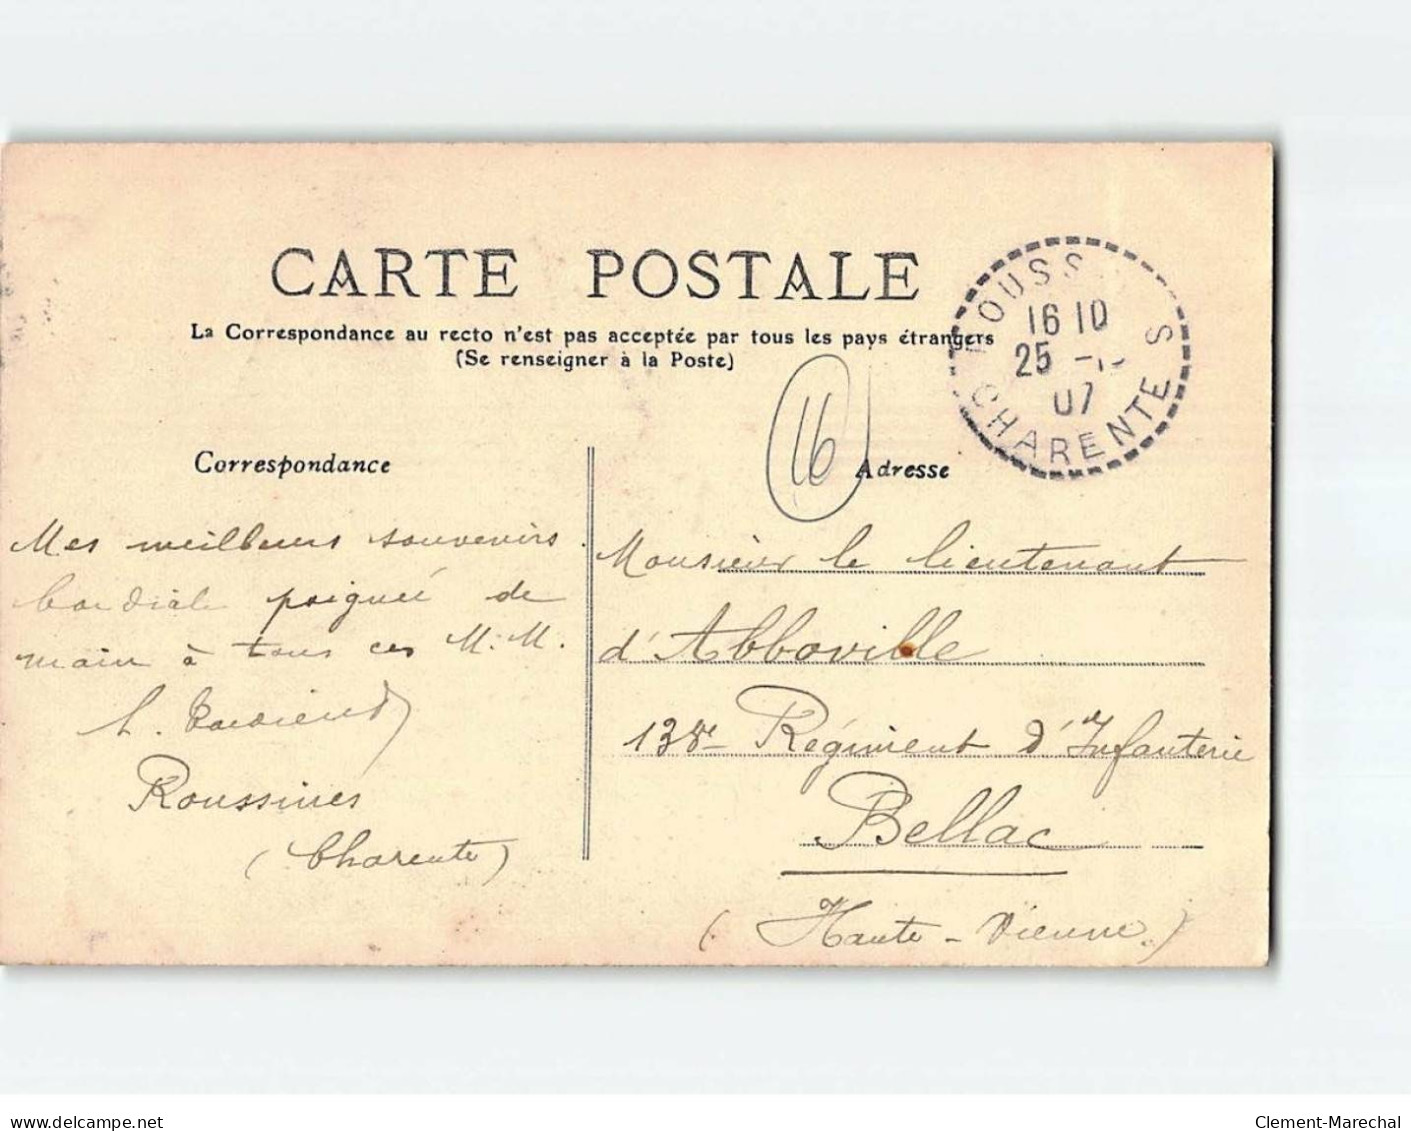 CARTE POSTALE
La Correspondance au recto n'est pas acceptée par tous les pays étrangers
(Se renseigner à la Poste)
OUSS S
16 10
25 -1
07
CHARENTE
16
Correspondance
Mes meilleurs souvenirs.
Cordiale poignée de
main à tous ces M.M.
Roussines
(Charente)
Adresse
Monsieur le lieutenant
d'Abboville
138e Régiment d'Infanterie
Bellac
(Haute-Vienne.)
delcampe.net
Clement-Marechal